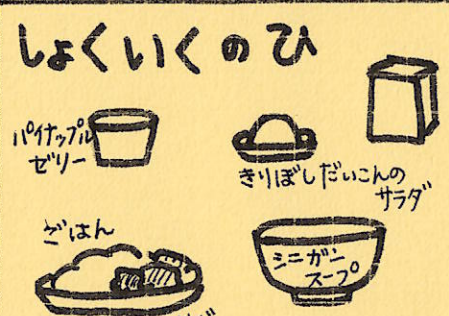 しょくいくのひ
パイナップル
ゼリー
きりぼしだいこんの
サラダ
ごはん
シニガン
スープ